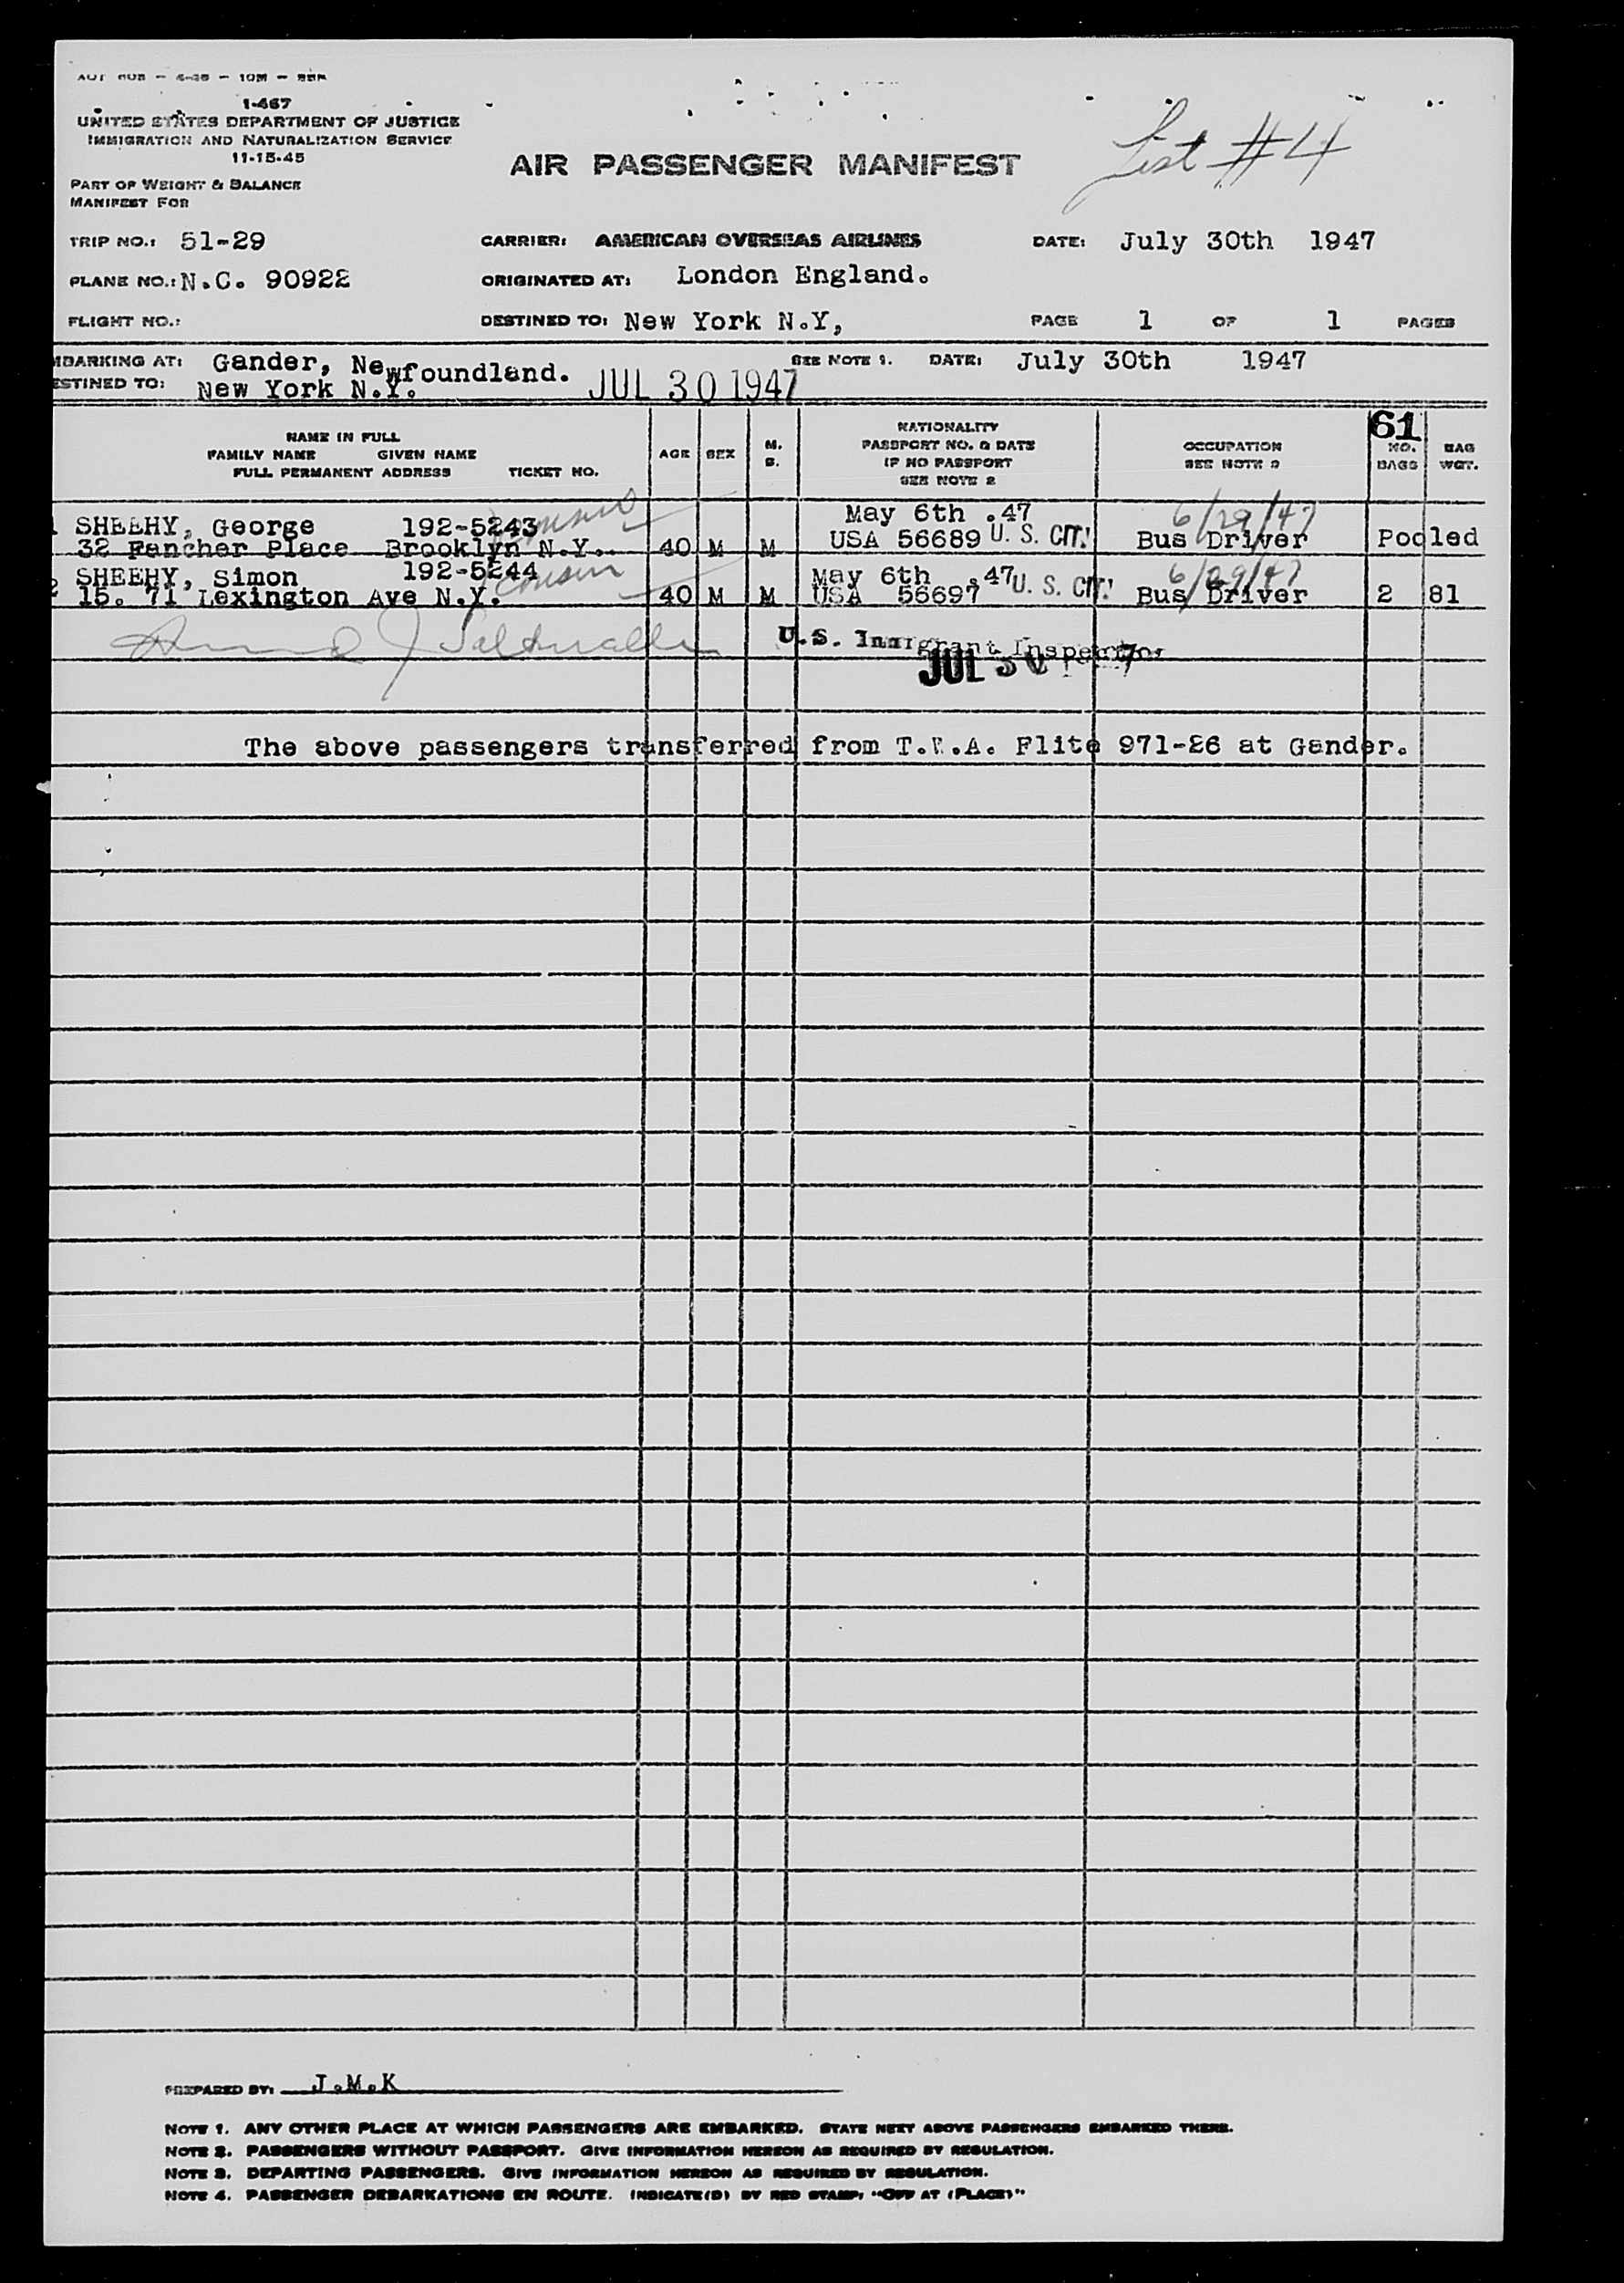 1-467
UNITED STATES DEPARTMENT OF JUSTICE
IMMIGRATION AND NATURALIZATION SERVICE
11-15-45
AIR PASSENGER MANIFEST
List #4
PART OF WEIGHT & BALANCE
MANIFEST FOR
TRIP NO.: 51-29 CARRIER: AMERICAN OVERSEAS AIRLINES DATE: July 30th 1947
PLANE NO.: N.C. 90922 ORIGINATED AT: London England.
FLIGHT NO.: DESTINED TO: New York N.Y, PAGE 1 OF 1 PAGES
MBARKING AT: Gander, Newfoundland. SEE NOTE 1. DATE: July 30th 1947
ESTINED TO: New York N.Y. JUL 30 1947
61
NAME IN FULL
FAMILY NAME GIVEN NAME
FULL PERMANENT ADDRESS TICKET NO.
AGE SEX M. S.
NATIONALITY
PASSPORT NO. & DATE
IF NO PASSPORT
SEE NOTE 2
OCCUPATION
SEE NOTE 3
NO. BAGS
BAG WGT.
1 SHEEHY, George 192-5243 May 6th .47 6/29/47
32 Fancher Place Brooklyn N.Y. 40 M M USA 56689 U. S. CIT. Bus Driver Pooled
2 SHEEHY, Simon 192-5244 cousin May 6th .47 U. S. CIT. 6/29/47
15. 71 Lexington Ave N.Y. 40 M M USA 56697 Bus Driver 2 81
U.S. Immigrant Inspector
JUL 30
The above passengers transferred from T.W.A. Flite 971-26 at Gander.
PREPARED BY: J.M.K
NOTE 1. ANY OTHER PLACE AT WHICH PASSENGERS ARE EMBARKED. STATE NEXT ABOVE PASSENGERS EMBARKED THERE.
NOTE 2. PASSENGERS WITHOUT PASSPORT. GIVE INFORMATION HEREON AS REQUIRED BY REGULATION.
NOTE 3. DEPARTING PASSENGERS. GIVE INFORMATION HEREON AS REQUIRED BY REGULATION.
NOTE 4. PASSENGER DEBARKATIONS EN ROUTE. INDICATE(D) BY RED STAMP: "OFF AT (PLACE)"